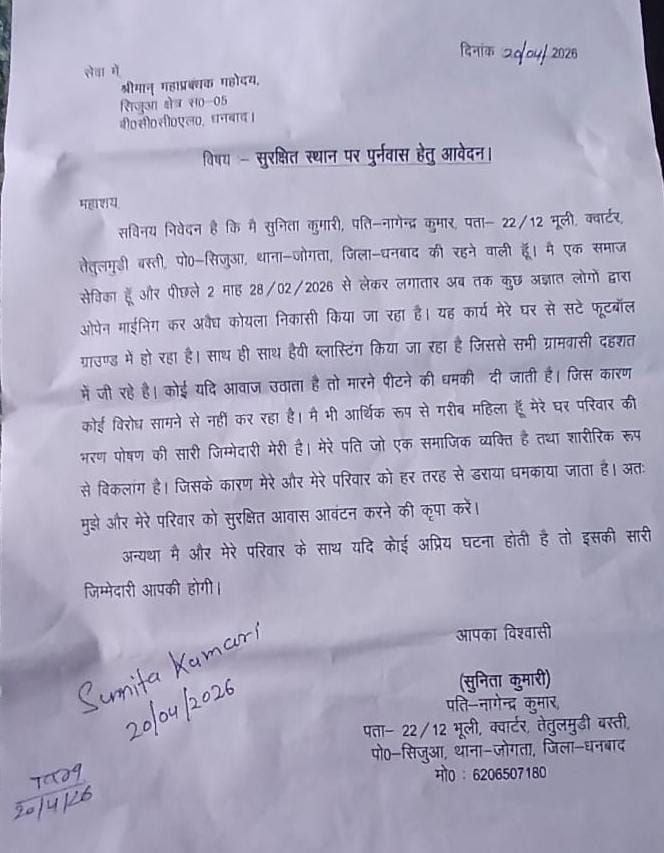 दिनांक 20/04/2026
सेवा में,
श्रीमान् महाप्रबंधक महोदय,
सिजुआ क्षेत्र स0-05
बी0सी0सी0एल0, धनबाद।
विषय :- सुरक्षित स्थान पर पुर्नवास हेतु आवेदन।
महाशय,
सविनय निवेदन है कि मै सुनिता कुमारी, पति-नागेन्द्र कुमार, पता- 22/12 भूली, क्वार्टर,
तेतुलमुडी बस्ती, पो0-सिजुआ, थाना-जोगता, जिला-धनबाद की रहने वाली हूँ। मै एक समाज
सेविका हूँ और पीछले 2 माह 28/02/2026 से लेकर लगातार अब तक कुछ अज्ञात लोगों द्वारा
ओपेन माईनिग कर अवैध कोयला निकासी किया जा रहा है। यह कार्य मेरे घर से सटे फूटबॉल
ग्राउण्ड में हो रहा है। साथ ही साथ हैवी ब्लास्टिंग किया जा रहा है जिससे सभी ग्रामवासी दहशत
में जी रहे है। कोई यदि आवाज उठाता है तो मारने पीटने की धमकी दी जाती है। जिस कारण
कोई विरोध सामने से नहीं कर रहा है। मै भी आर्थिक रूप से गरीब महिला हूँ मेरे घर परिवार की
भरण पोषण की सारी जिम्मेदारी मेरी है। मेरे पति जो एक समाजिक व्यक्ति है तथा शारीरिक रूप
से विकलांग है। जिसके कारण मेरे और मेरे परिवार को हर तरह से डराया धमकाया जाता है। अतः
मुझे और मेरे परिवार को सुरक्षित आवास आवंटन करने की कृपा करें।
अन्यथा मै और मेरे परिवार के साथ यदि कोई अप्रिय घटना होती है तो इसकी सारी
जिम्मेदारी आपकी होगी।
आपका विश्वासी
(सुनिता कुमारी)
पति-नागेन्द्र कुमार,
पता- 22/12 भूली, क्वार्टर, तेतुलमुडी बस्ती,
पो0-सिजुआ, थाना-जोगता, जिला-धनबाद
मो0 : 6206507180
Sumita Kumari
20/04/2026
20/4/26